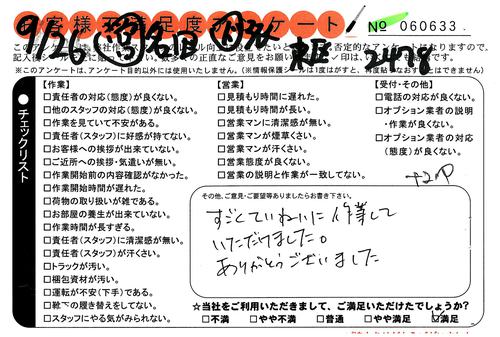 お客様不満足度アンケート
№ 060633
9/26
東区 2478
※このアンケートは、アンケート目的以外には使用いたしません。
チェックリスト
【作業】
□責任者の対応(態度)が良くない。
□他のスタッフの対応(態度)が良くない。
□作業を見ていて不安がある。
□責任者(スタッフ)に好感が持てない。
□お客様への挨拶が出来ていない。
□ご近所への挨拶・気遣いが無い。
□作業開始前の内容確認がなかった。
□作業開始時間が遅れた。
□荷物の取り扱いが雑である。
□お部屋の養生が出来ていない。
□作業時間が長すぎる。
□責任者(スタッフ)に清潔感が無い。
□責任者(スタッフ)が汗くさい。
□トラックが汚い。
□梱包資材が汚い。
□運転が不安(下手)である。
□靴下の履き替えをしてない。
□スタッフにやる気がみられない。
【営業】
□見積もり時間に遅れた。
□見積もり時間が長い。
□営業マンに清潔感が無い。
□営業マンが煙草くさい。
□営業マンが汗くさい。
□営業態度が良くない。
□営業の説明と作業が一致してない。
【受付・その他】
□電話の対応が良くない。
□オプション業者の説明
・作業が良くない。
□オプション業者の対応
(態度)が良くない。
その他、ご意見・ご要望等ありましたらお書き下さい。
すごくていねいに作業して
いただけました。
ありがとうございました
☆当社をご利用いただきまして、ご満足いただけたでしょうか?
□不満 □やや不満 □普通 □やや満足 ☑満足